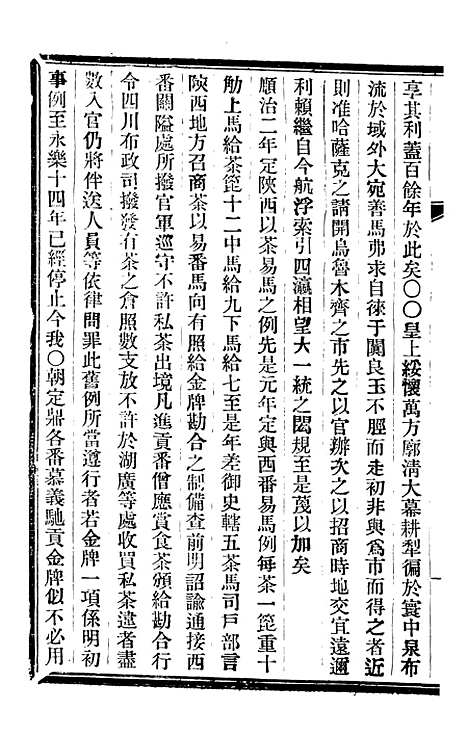 享其利蓋百餘年於此矣〇〇皇上綏懷萬方廓清大幕耕犁徧於寰中泉布
流於域外大宛善馬弗求自徠于闐良玉不脛而走初非與爲市而得之者近
則准哈薩克之請開烏魯木齊之市先之以官辦次之以招商時地交宜遠邇
利賴繼自今航浮索引四瀛相望大一統之閎規至是蔑以加矣
順治二年定陝西以茶易馬之例先是元年定與西番易馬例每茶一篦重十
觔上馬給茶篦十二中馬給九下馬給七至是年差御史轄五茶馬司戶部言
陝西地方召商茶以易番馬向有照給金牌勘合之制備查前明詔諭通接西
番關隘處所撥官軍巡守不許私茶出境凡進貢番僧應賞食茶頒給勘合行
令四川布政司撥發有茶之倉照數支放不許於湖廣等處收買私茶違者盡
數入官仍將伴送人員等依律問罪此舊例所當遵行者若金牌一項係明初
事例至永樂十四年已經停止今我〇朝定鼎各番慕義馳貢金牌似不必用